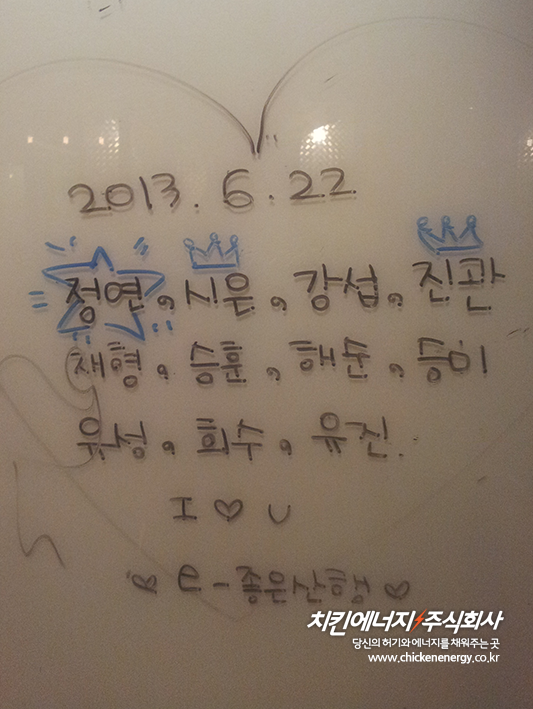 2013. 6. 22
정연, 시은, 강섭, 진관
채형, 승훈, 해준, 승이
유성, 희수, 유진.
I ♡ U
♡ e-좋은산행 ♡
치킨에너지 주식회사
당신의 허기와 에너지를 채워주는 곳
www.chickenenergy.co.kr